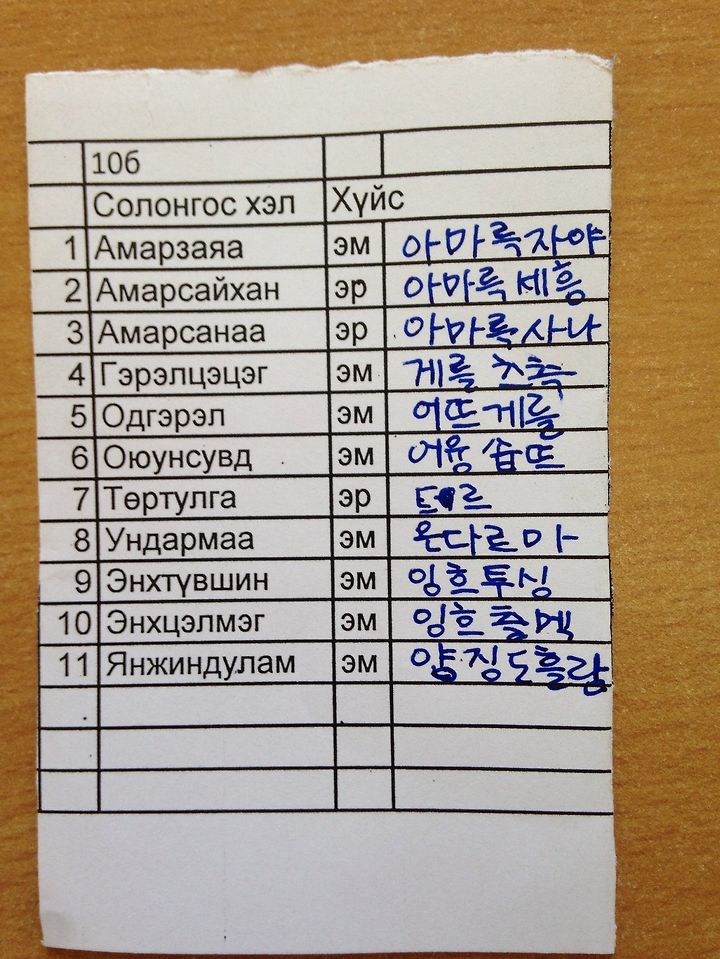 10б
Солонгос хэл Хүйс
1 Амарзаяа эм 아마륵자야
2 Амарсайхан эр 아마륵세흥
3 Амарсанаа эр 아마륵사나
4 Гэрэлцэцэг эм 게를츠측
5 Одгэрэл эм 어뜨게를
6 Оюунсувд эм 어용숩뜨
7 Төртулга эр
8 Ундармаа эм 온다르마
9 Энхтүвшин эм 잉흐투싱
10 Энхцэлмэг эм 잉흐츨멕
11 Янжиндулам эм 양징도흘람